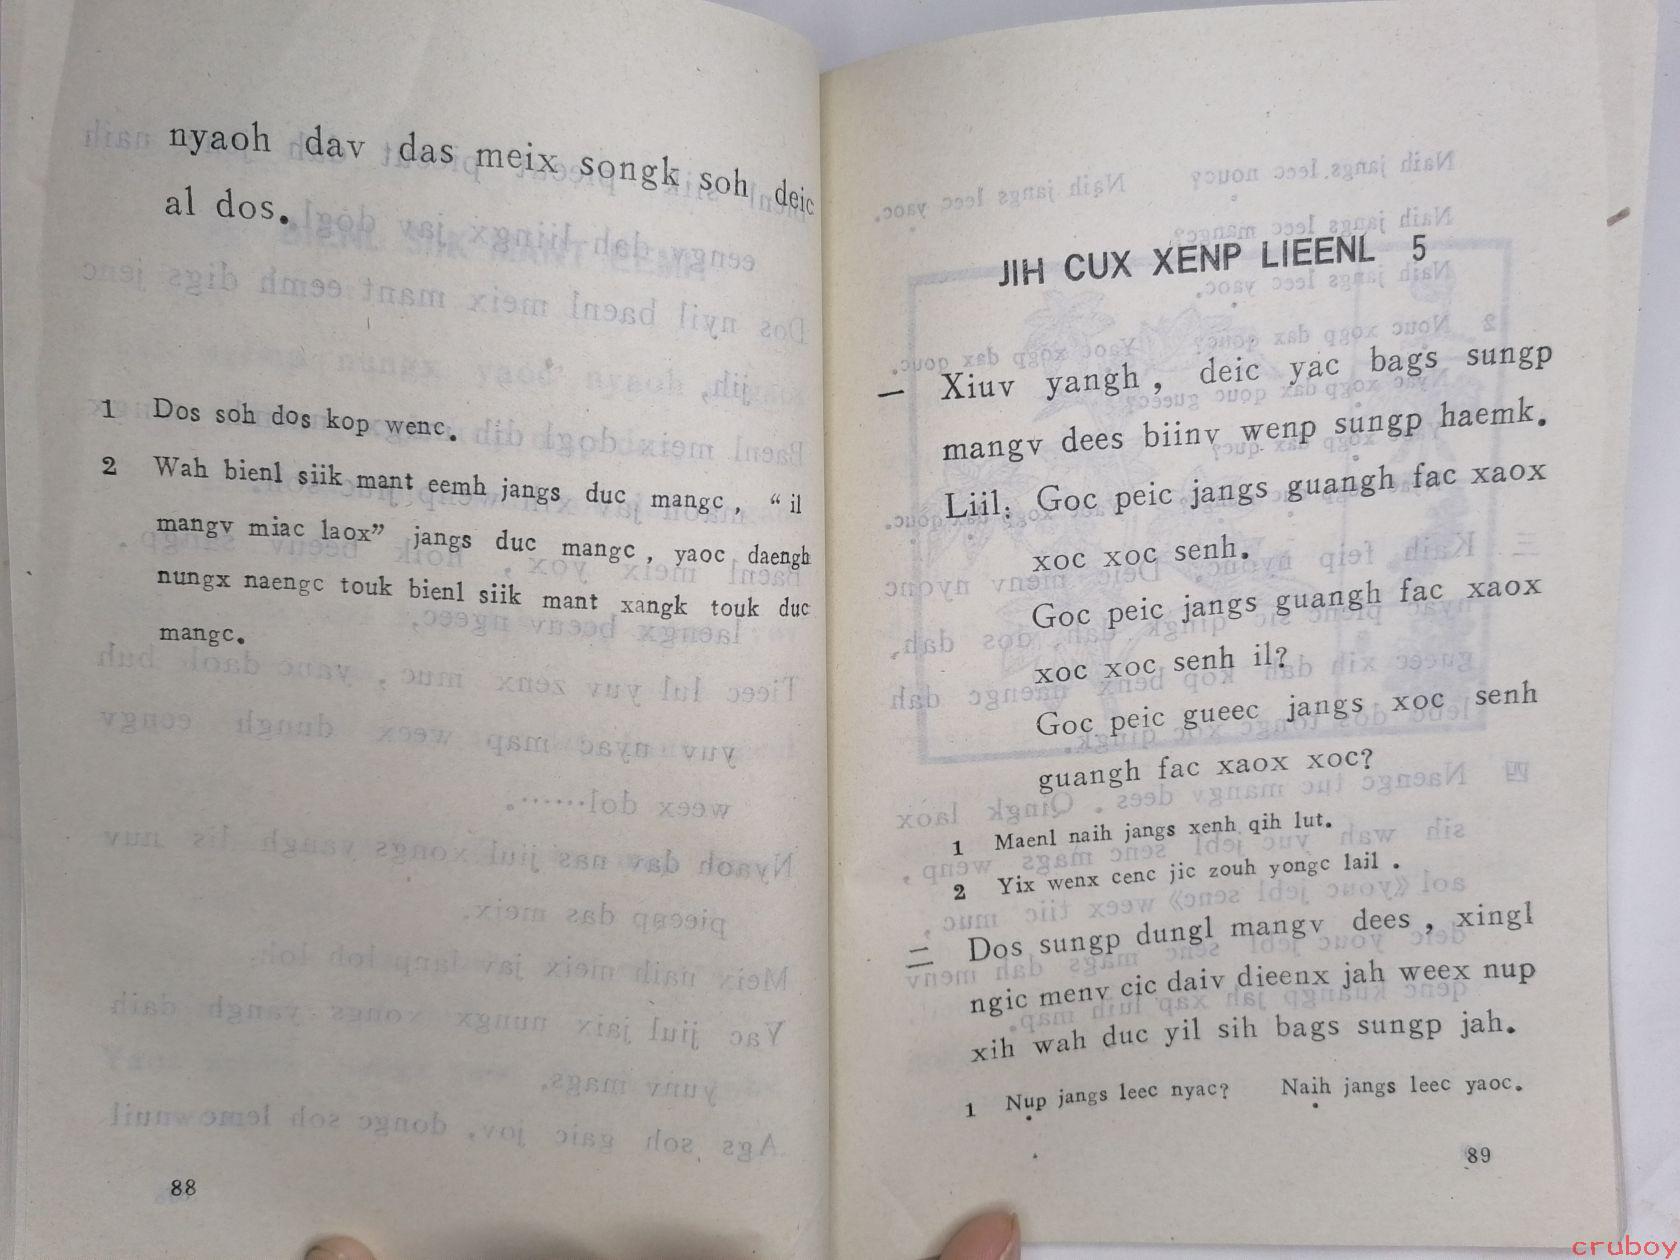 nyaoh dav das meix songk soh deic
al dos.
1 Dos soh dos kop wenc.
2 Wah bienl siik mant eemh jangs duc mangc, “il
mangv miac laox” jangs duc mangc, yaoc daengh
nungx naengc touk bienl siik mant xangk touk duc
mangc.
88
JIH CUX XENP LIEENL 5
一 Xiuv yangh, deic yac bags sungp
mangv dees biinv wenp sungp haemk.
Liil: Goc peic jangs guangh fac xaox
xoc xoc senh.
Goc peic jangs guangh fac xaox
xoc xoc senh il?
Goc peic gueec jangs xoc senh
guangh fac xaox xoc?
1 Maenl naih jangs xenh qih lut.
2 Yix wenx cenc jic zouh yongc lail.
二 Dos sungp dungl mangv dees, xingl
ngic menv cic daiv dieenx jah weex nup
xih wah duc yil sih bags sungp jah.
1 Nup jangs leec nyac? Naih jangs leec yaoc.
89
cruboy